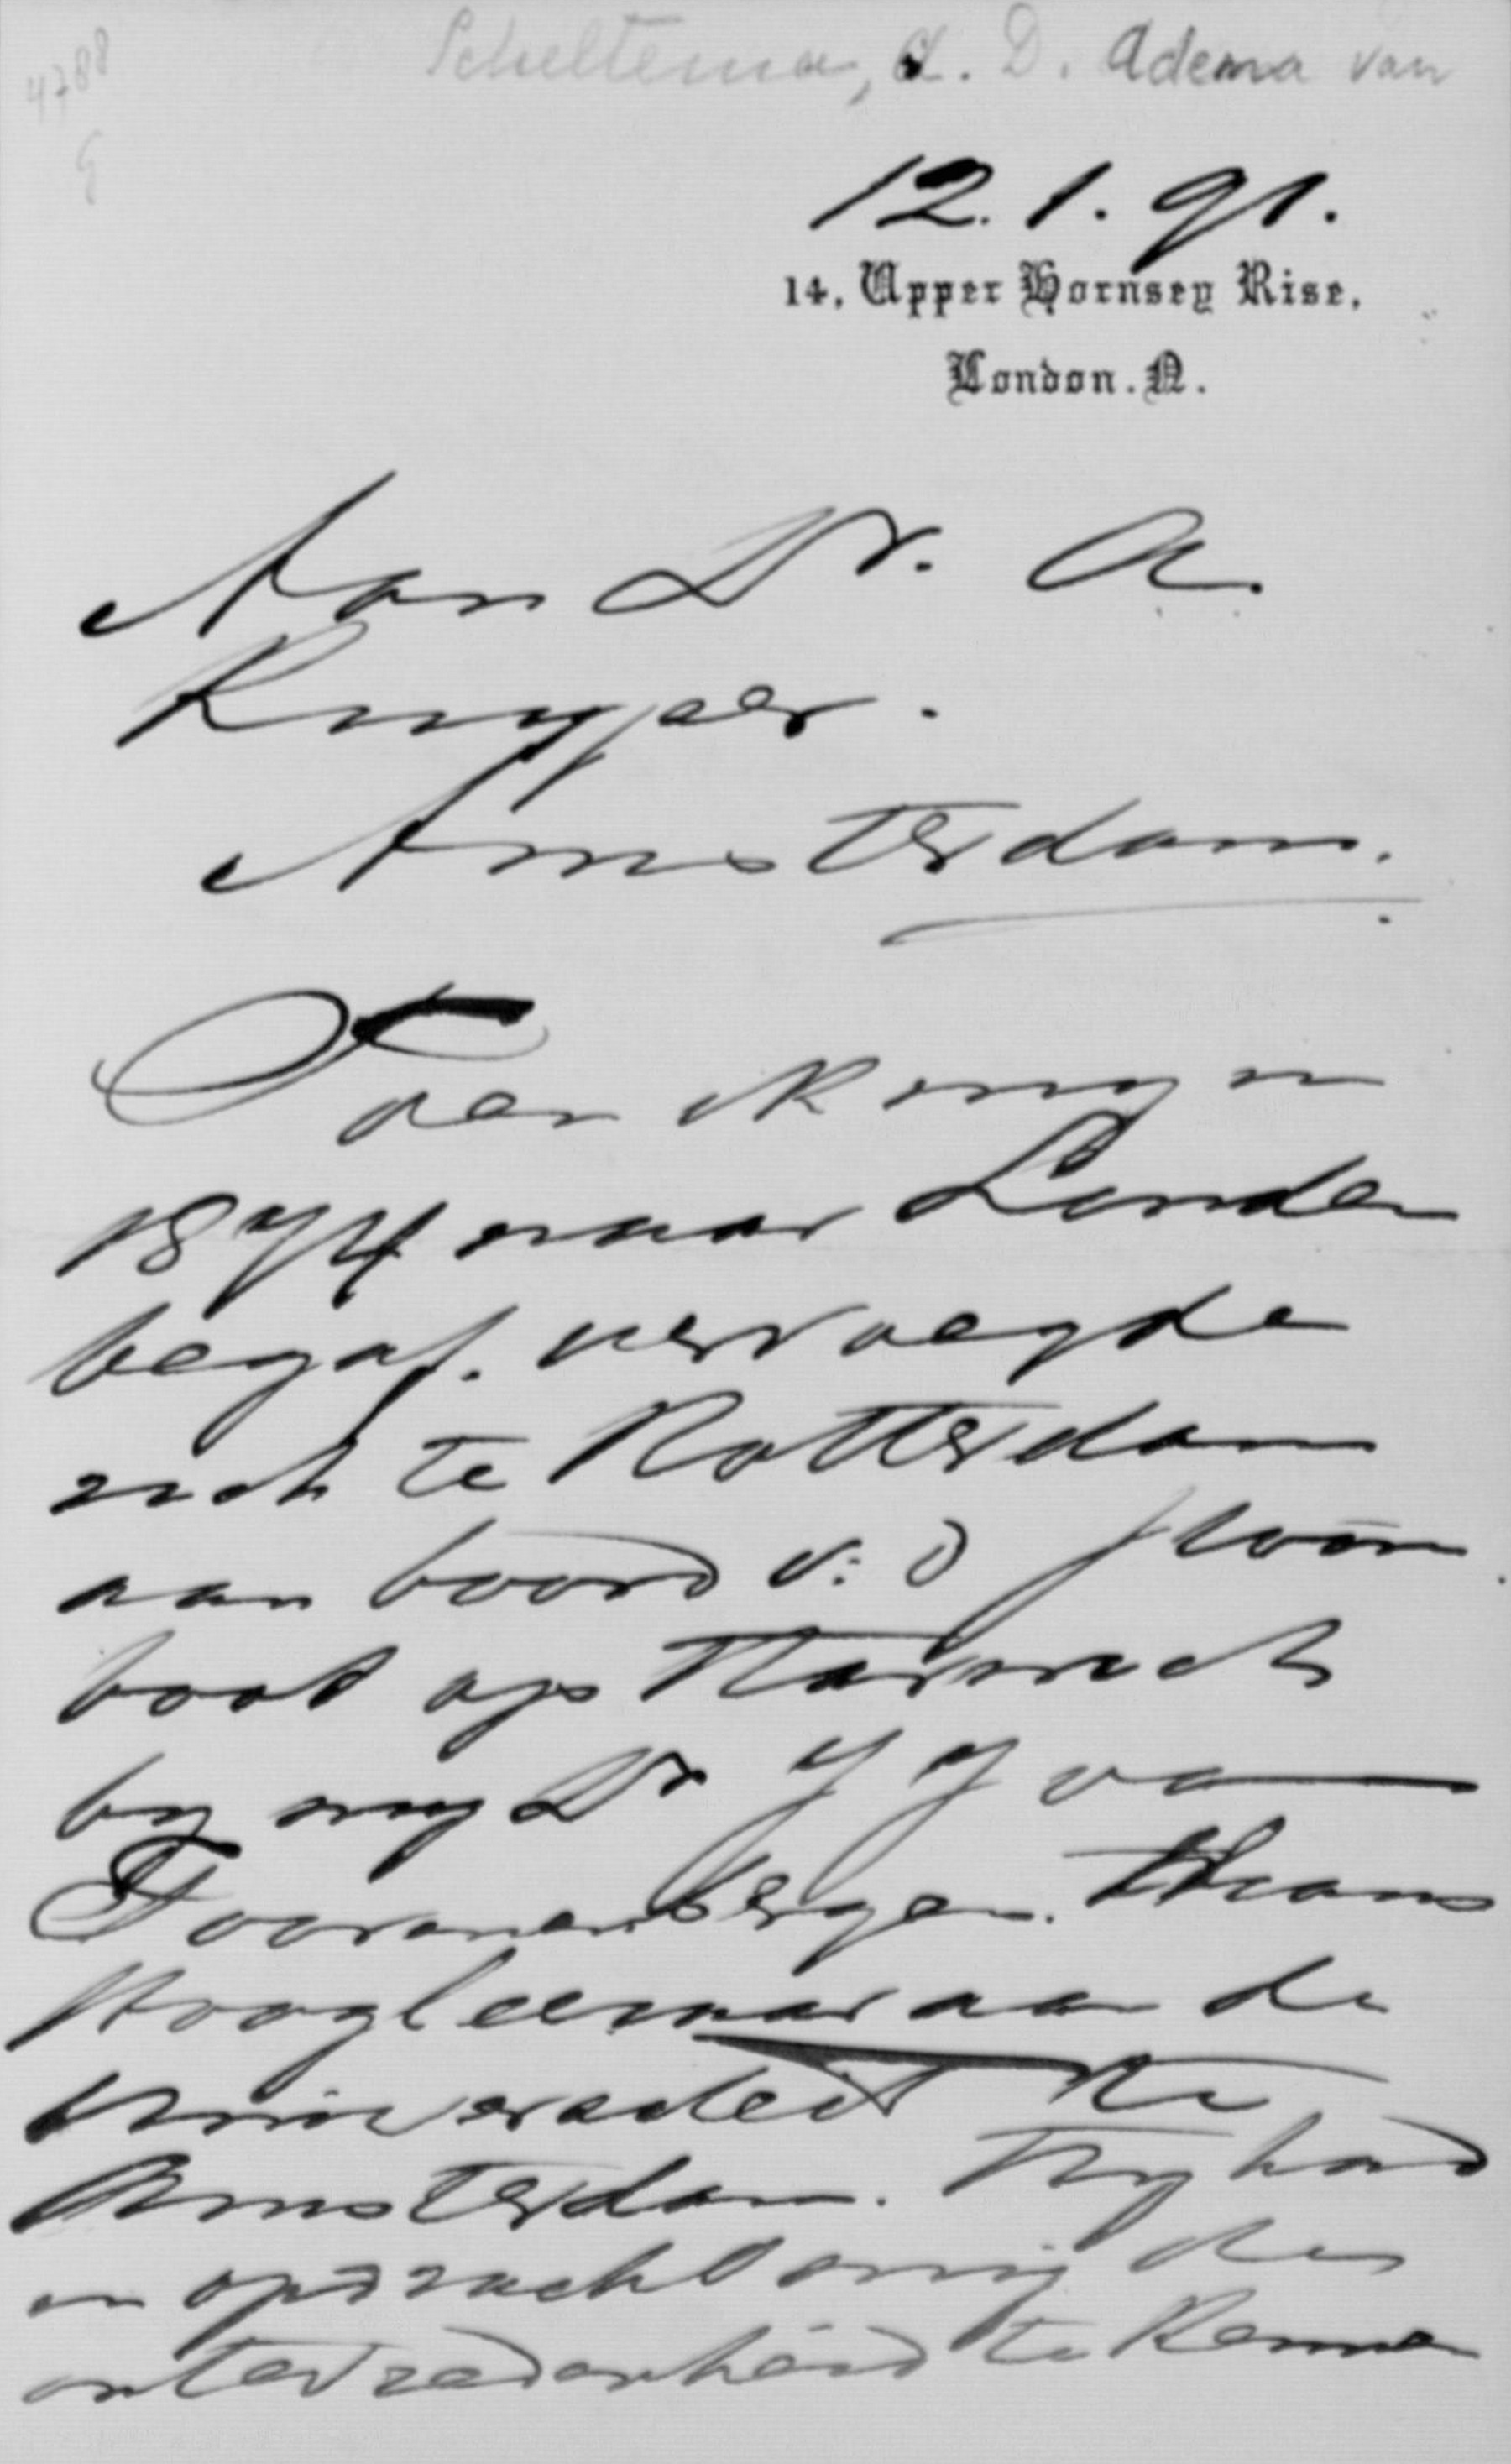 Scheltema, C. D. Adema van
4788
G
12.1.91.
14, Upper Hornsey Rise,
London. N.
Aan Dr. A.
Kuyper.
Amsterdam.
Toen ik my in
1874 naar Londen
begaf. vervoegde
zich te Rotterdam
aan boord v. d stoom
boot op Harwich
by my Dr J J van
Toorenenbergen. thans
Hoogleeraar aan de
Universiteit te
Amsterdam. Hy had
in opdracht my den
ontevredenheid te kennen